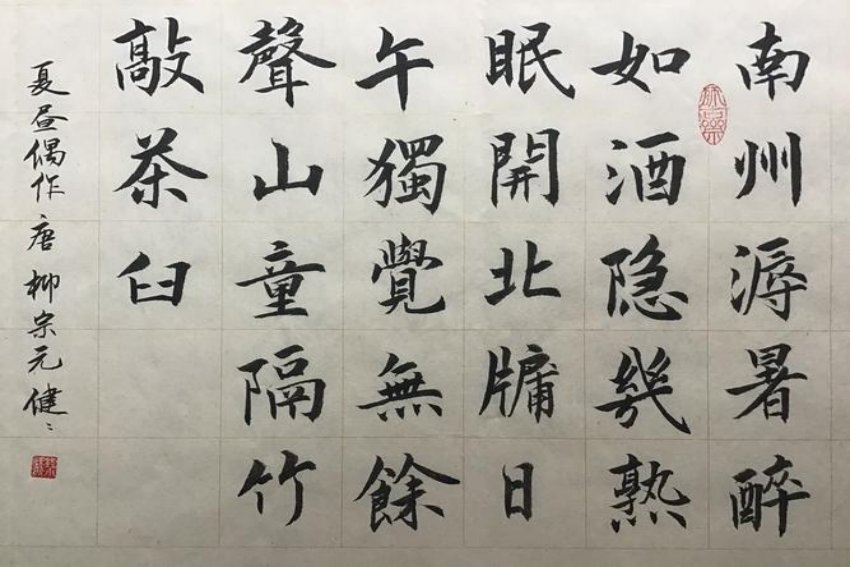 南州溽暑醉
如酒隐幾熟
眠開北牗日
午獨覺無餘
聲山童隔竹
敲茶臼
夏昼偶作唐柳宗元健〻